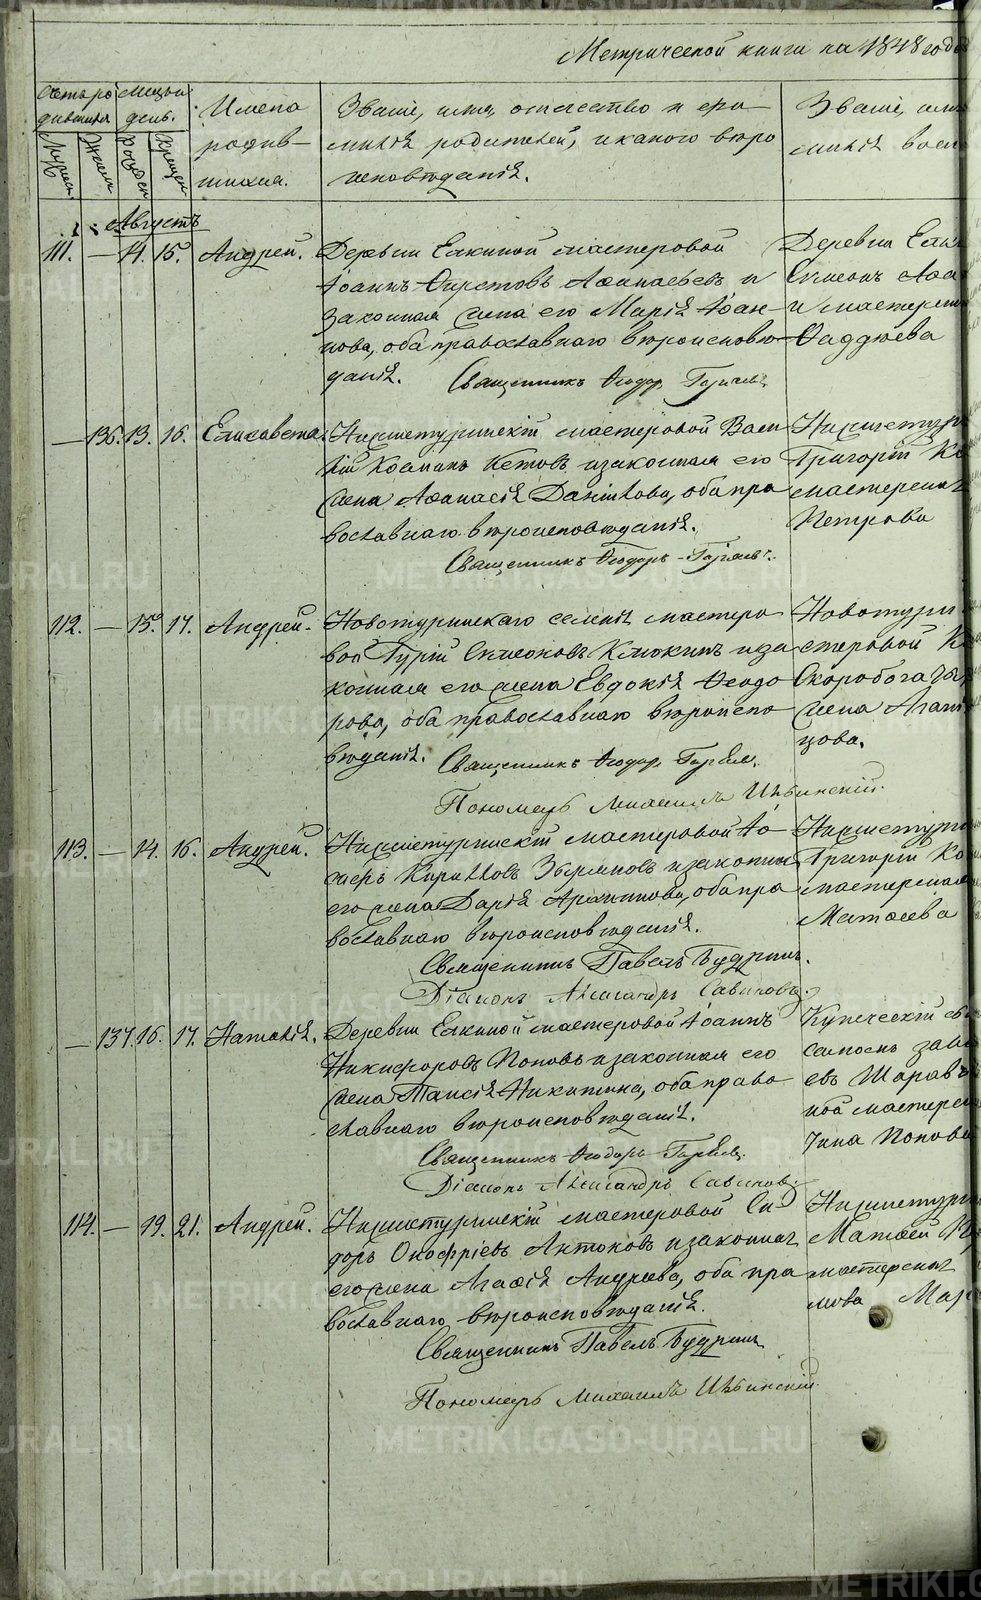 METRIKI.GASO-URAL.RU
Метрической книги на 1848 годъ
Счетъ родившихся
Мужеск.
Женск.
Месяцъ и день.
Рожден.
Крещен.
Имена
родив-
шихся.
Званіе, имя, отчество и фа-
милія родителей, и какого вѣро
исповѣданія.
Званіе, имя
милія восп
Августъ
111. — 14. 15. Андрей.
Деревни Елкиной мастеровой
Іоаннъ Аѳанасьевъ и
законная жена его Марія Іоан-
нова, оба православнаго вѣроисповѣ-
данія.
Священникъ Ѳеодоръ
Деревни Елк
Симеонъ Аѳа
и мастерск
Ѳаддѣева
— 136. 13. 16. Елисавета.
Нижнетуринскій мастеровой Васи
лій Косминъ Кетовъ и законная его
жена Аѳанасія Даніилова, оба пра
вославнаго вѣроисповѣданія.
Священникъ Ѳеодоръ
Нижнетури
Григорій Ко
мастерска
Петрова
112. — 15. 17. Андрей.
Новотуринскаго селенія мастеро
вой Гурій Симеоновъ Клюкинъ и за
конная его жена Евдокія Ѳеодо
рова, оба православнаго вѣроиспо
вѣданія.
Священникъ Ѳеодоръ
Пономарь Михаилъ Ильинскій.
Новотури
стеровой
Скоробога
жена Агаѳ
цова.
113. — 14. 16. Андрей.
Нижнетуринскій мастеровой Іо
сифъ Кирилловъ и законная
его жена Дарія оба пра
вославнаго вѣроисповѣданія.
Священникъ Павелъ Будринъ.
Діаконъ Александръ Савиновъ.
Нижнетури
Григорій Ко
мастерская
Матѳеева
— 137. 16. 17. Наталія.
Деревни Елкиной мастеровой Іоаннъ
Никифоровъ Поповъ и законная его
жена Таисія Никитина, оба право
славнаго вѣроисповѣданія.
Священникъ Ѳеодоръ
Діаконъ Александръ Савиновъ.
Купеческій
евъ Шарав
ной мастерс
нина Попова
114. — 19. 21. Андрей.
Нижнетуринскій мастеровой Си
доръ Онофріевъ Антоновъ и законная
его жена Агаѳія Андреева, оба пра
вославнаго вѣроисповѣданія.
Священникъ Павелъ Будринъ
Пономарь Михаилъ Ильинскій.
Нижнетури
Матѳей
мастерска
мова Мар
METRIKI.GASO-URAL.RU